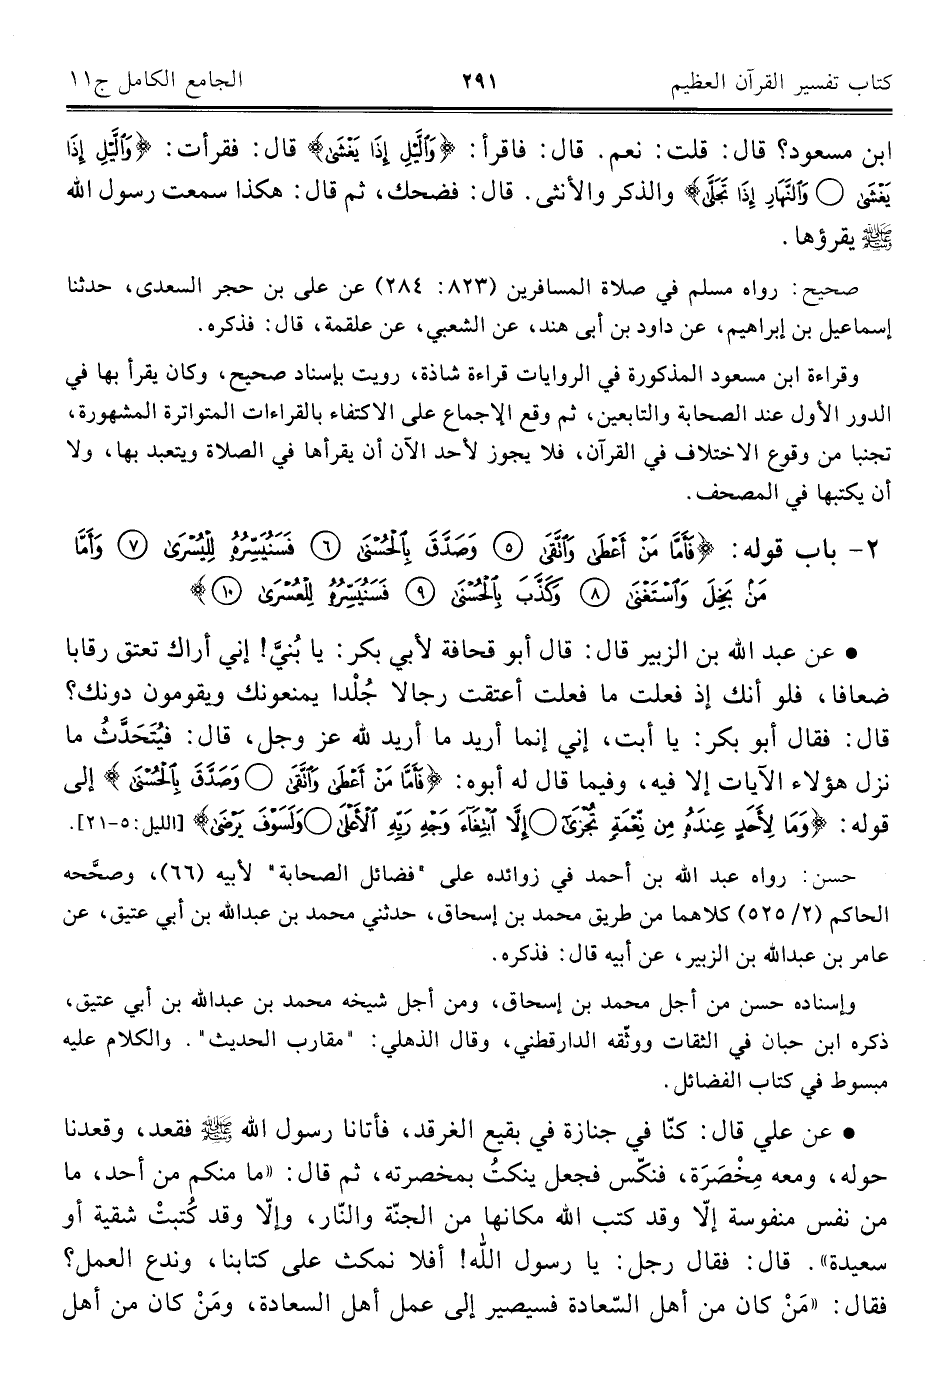 كتاب تفسير القرآن العظيم ٢٩١ الجامع الكامل ج١١
ابن مسعود؟ قال: قلت: نعم. قال: فاقرأ: ﴿وَٱلَّيۡلِ إِذَا يَغۡشَىٰ﴾ قال: فقرأت: ﴿وَٱلَّيۡلِ إِذَا
يَغۡشَىٰ ۝ وَٱلنَّهَارِ إِذَا تَجَلَّىٰ﴾ والذكر والأنثى. قال: فضحك، ثم قال: هكذا سمعت رسول الله
ﷺ يقرؤها.
صحيح: رواه مسلم في صلاة المسافرين (٨٢٣: ٢٨٤) عن على بن حجر السعدى، حدثنا
إسماعيل بن إبراهيم، عن داود بن أبى هند، عن الشعبي، عن علقمة، قال: فذكره.
وقراءة ابن مسعود المذكورة في الروايات قراءة شاذة، رويت بإسناد صحيح، وكان يقرأ بها في
الدور الأول عند الصحابة والتابعين، ثم وقع الإجماع على الاكتفاء بالقراءات المتواترة المشهورة،
تجنبا من وقوع الاختلاف في القرآن، فلا يجوز لأحد الآن أن يقرأها في الصلاة ويتعبد بها، ولا
أن يكتبها في المصحف.
٢- باب قوله: ﴿فَأَمَّا مَنۡ أَعۡطَىٰ وَٱتَّقَىٰ ٥ وَصَدَّقَ بِٱلۡحُسۡنَىٰ ٦ فَسَنُيَسِّرُهُۥ لِلۡيُسۡرَىٰ ٧ وَأَمَّا
مَنۢ بَخِلَ وَٱسۡتَغۡنَىٰ ٨ وَكَذَّبَ بِٱلۡحُسۡنَىٰ ٩ فَسَنُيَسِّرُهُۥ لِلۡعُسۡرَىٰ ١٠﴾
• عن عبد الله بن الزبير قال: قال أبو قحافة لأبي بكر: يا بُنيَّ! إني أراك تعتق رقابا
ضعافا، فلو أنك إذ فعلت ما فعلت أعتقت رجالا جُلْدا يمنعونك ويقومون دونك؟
قال: فقال أبو بكر: يا أبت، إني إنما أريد ما أريد لله عز وجل، قال: فيُتَحَدَّثُ ما
نزل هؤلاء الآيات إلا فيه، وفيما قال له أبوه: ﴿فَأَمَّا مَنۡ أَعۡطَىٰ وَٱتَّقَىٰ ۝ وَصَدَّقَ بِٱلۡحُسۡنَىٰ﴾ إلى
قوله: ﴿وَمَا لِأَحَدٍ عِندَهُۥ مِن نِّعۡمَةٖ تُجۡزَىٰٓ ۝ إِلَّا ٱبۡتِغَآءَ وَجۡهِ رَبِّهِ ٱلۡأَعۡلَىٰ ۝ وَلَسَوۡفَ يَرۡضَىٰ﴾ [الليل:٥-٢١].
حسن: رواه عبد الله بن أحمد في زوائده على "فضائل الصحابة" لأبيه (٦٦)، وصحَّحه
الحاكم (٢/ ٥٢٥) كلاهما من طريق محمد بن إسحاق، حدثني محمد بن عبدالله بن أبي عتيق، عن
عامر بن عبدالله بن الزبير، عن أبيه قال: فذكره.
وإسناده حسن من أجل محمد بن إسحاق، ومن أجل شيخه محمد بن عبدالله بن أبي عتيق،
ذكره ابن حبان في الثقات ووثّقه الدارقطني، وقال الذهلي: "مقارب الحديث". والكلام عليه
مبسوط في كتاب الفضائل.
• عن علي قال: كنّا في جنازة في بقيع الغرقد، فأتانا رسول الله ﷺ فقعد، وقعدنا
حوله، ومعه مِخْصَرَة، فنكّس فجعل ينكتُ بمخصرته، ثم قال: «ما منكم من أحد، ما
من نفس منفوسة إلّا وقد كتب الله مكانها من الجنّة والنّار، وإلّا وقد كُتبتْ شقية أو
سعيدة». قال: فقال رجل: يا رسول الله! أفلا نمكث على كتابنا، وندع العمل؟
فقال: «مَنْ كان من أهل السّعادة فسيصير إلى عمل أهل السعادة، ومَنْ كان من أهل